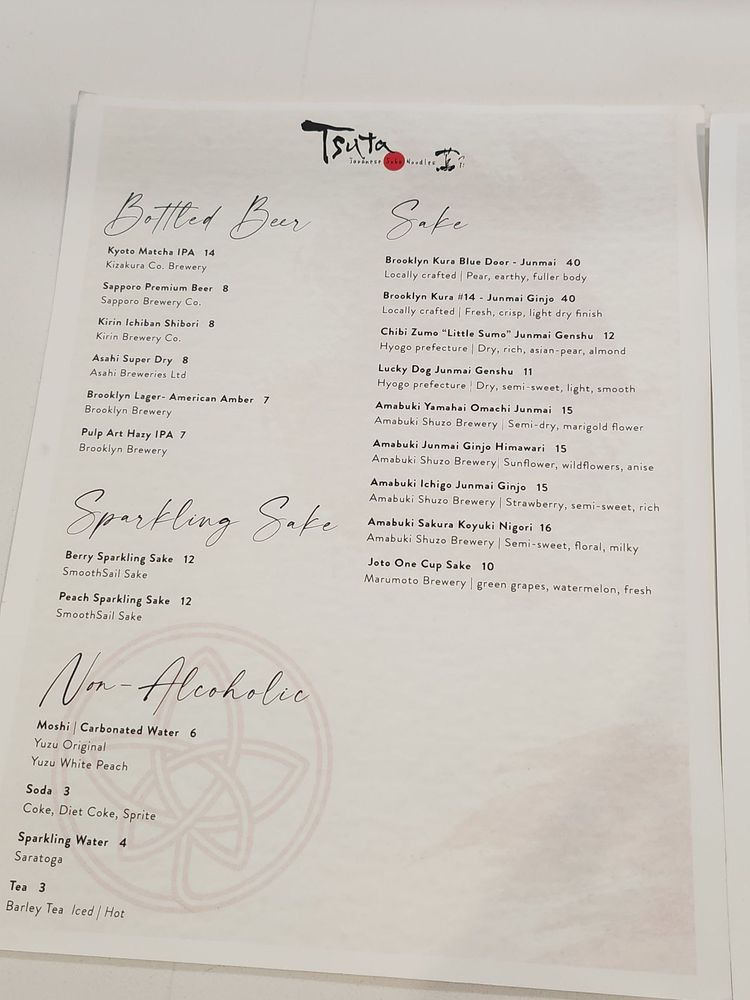 Tsuta
Japanese Soba Noodles 蔦
Bottled Beer
Kyoto Matcha IPA 14
Kizakura Co. Brewery
Sapporo Premium Beer 8
Sapporo Brewery Co.
Kirin Ichiban Shibori 8
Kirin Brewery Co.
Asahi Super Dry 8
Asahi Breweries Ltd
Brooklyn Lager- American Amber 7
Brooklyn Brewery
Pulp Art Hazy IPA 7
Brooklyn Brewery
Sparkling Sake
Berry Sparkling Sake 12
SmoothSail Sake
Peach Sparkling Sake 12
SmoothSail Sake
Non-Alcoholic
Moshi | Carbonated Water 6
Yuzu Original
Yuzu White Peach
Soda 3
Coke, Diet Coke, Sprite
Sparkling Water 4
Saratoga
Tea 3
Barley Tea Iced | Hot
Sake
Brooklyn Kura Blue Door - Junmai 40
Locally crafted | Pear, earthy, fuller body
Brooklyn Kura #14 - Junmai Ginjo 40
Locally crafted | Fresh, crisp, light dry finish
Chibi Zumo “Little Sumo” Junmai Genshu 12
Hyogo prefecture | Dry, rich, asian-pear, almond
Lucky Dog Junmai Genshu 11
Hyogo prefecture | Dry, semi-sweet, light, smooth
Amabuki Yamahai Omachi Junmai 15
Amabuki Shuzo Brewery | Semi-dry, marigold flower
Amabuki Junmai Ginjo Himawari 15
Amabuki Shuzo Brewery| Sunflower, wildflowers, anise
Amabuki Ichigo Junmai Ginjo 15
Amabuki Shuzo Brewery | Strawberry, semi-sweet, rich
Amabuki Sakura Koyuki Nigori 16
Amabuki Shuzo Brewery | Semi-sweet, floral, milky
Joto One Cup Sake 10
Marumoto Brewery | green grapes, watermelon, fresh